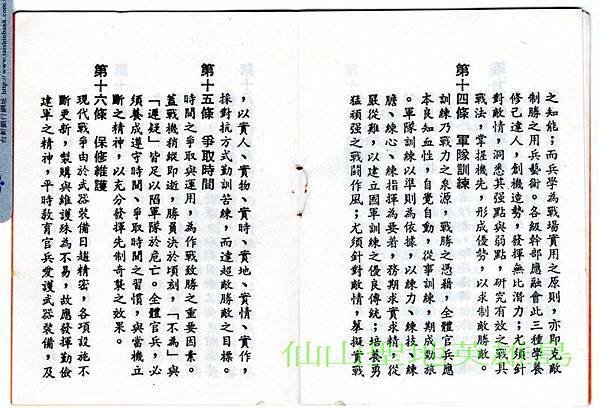 之知能；而兵學為戰場實用之原則，亦即克敵
制勝之用兵藝術。各級幹部應融會此三種學養
修己達人，創機造勢，發揮無比潛力；尤須針
對敵情，洞悉其強點與弱點，研究有效之戰具
戰法，掌握機先，形成優勢，以求制敵勝敵。
第十四條　軍隊訓練
訓練乃戰力之泉源，戰勝之憑藉，全體官兵應
本良知血性，自覺自動，從事訓練，期成勁旅
。軍隊訓練以準則為依據，以練力、練技、練
膽、練心、練指揮為要着，務期求實求精，從
嚴從難，以建立國軍訓練之優良傳統；培養勇
猛頑強之戰鬪作風；尤須針對敵情，摹擬實戰
，以實人、實物、實時、實地、實情、實作，
採對抗方式勤訓苦練，而達超敵勝敵之目標。
第十五條　爭取時間
時間之爭取與運用，為作戰致勝之重要因素。
蓋戰機稍縱即逝，勝負決於頃刻，「不為」與
「遲疑」皆足以陷軍隊於危亡。全體官兵，必
須養成遵守時間、爭取時間之習慣，與當機立
斷之精神，以充分發揮先制奇襲之效果。
第十六條　保修維護
現代戰爭由於武器裝備日趨精密，各項設施不
斷更新，製購與維護殊為不易，故應發揮勤儉
建軍之精神，平時教育官兵愛護武器裝備，及
仙山聖地英雄島